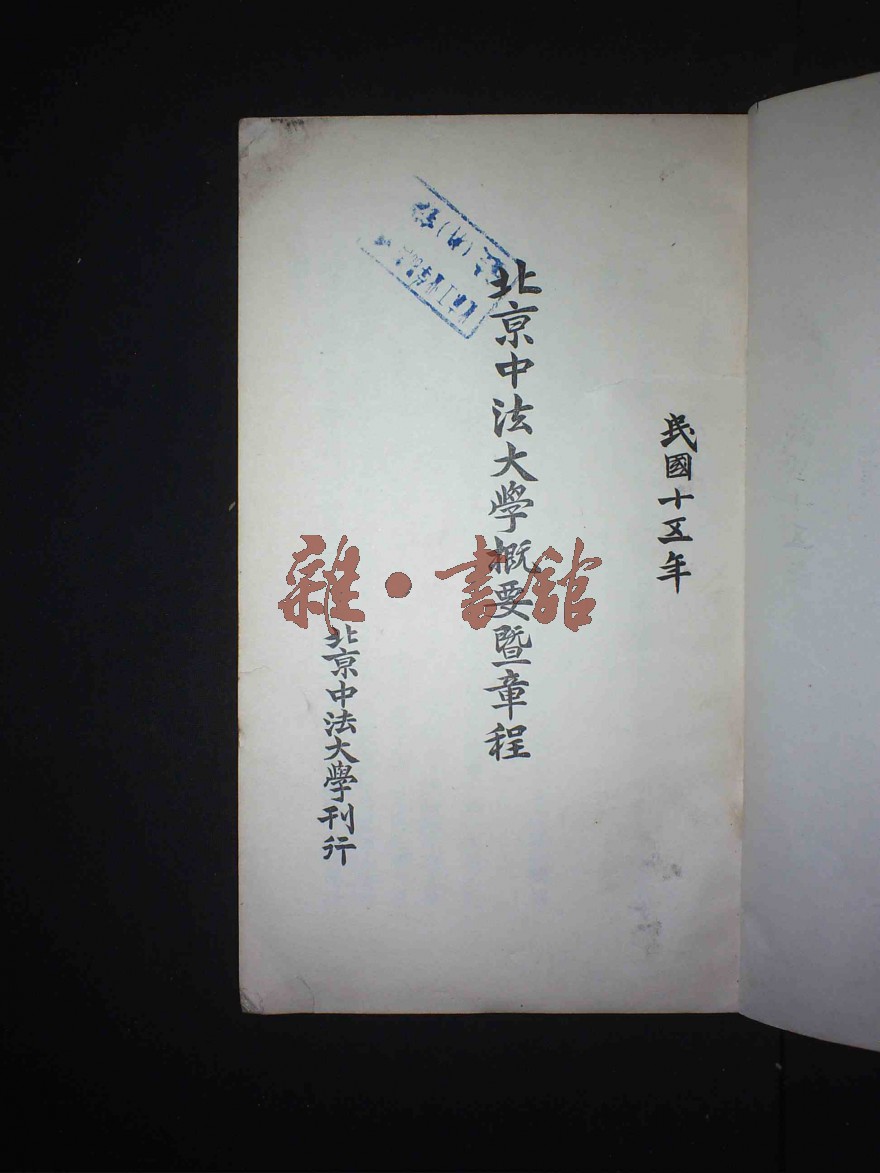 民國十五年
北京中法大學概要暨章程
北京中法大學刊行
雜·書館